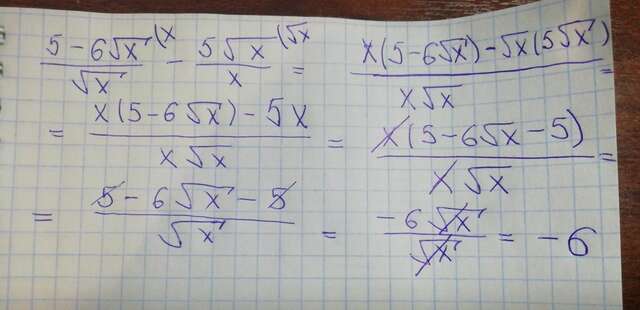 (5 - 6√x)/√x (x - 5√x/x (√x = (x(5-6√x) - √x(5√x))/(x√x) =
= (x(5-6√x) - 5x)/(x√x) = (x(5-6√x-5))/(x√x) =
= (5 - 6√x - 5)/√x = (-6√x)/√x = -6